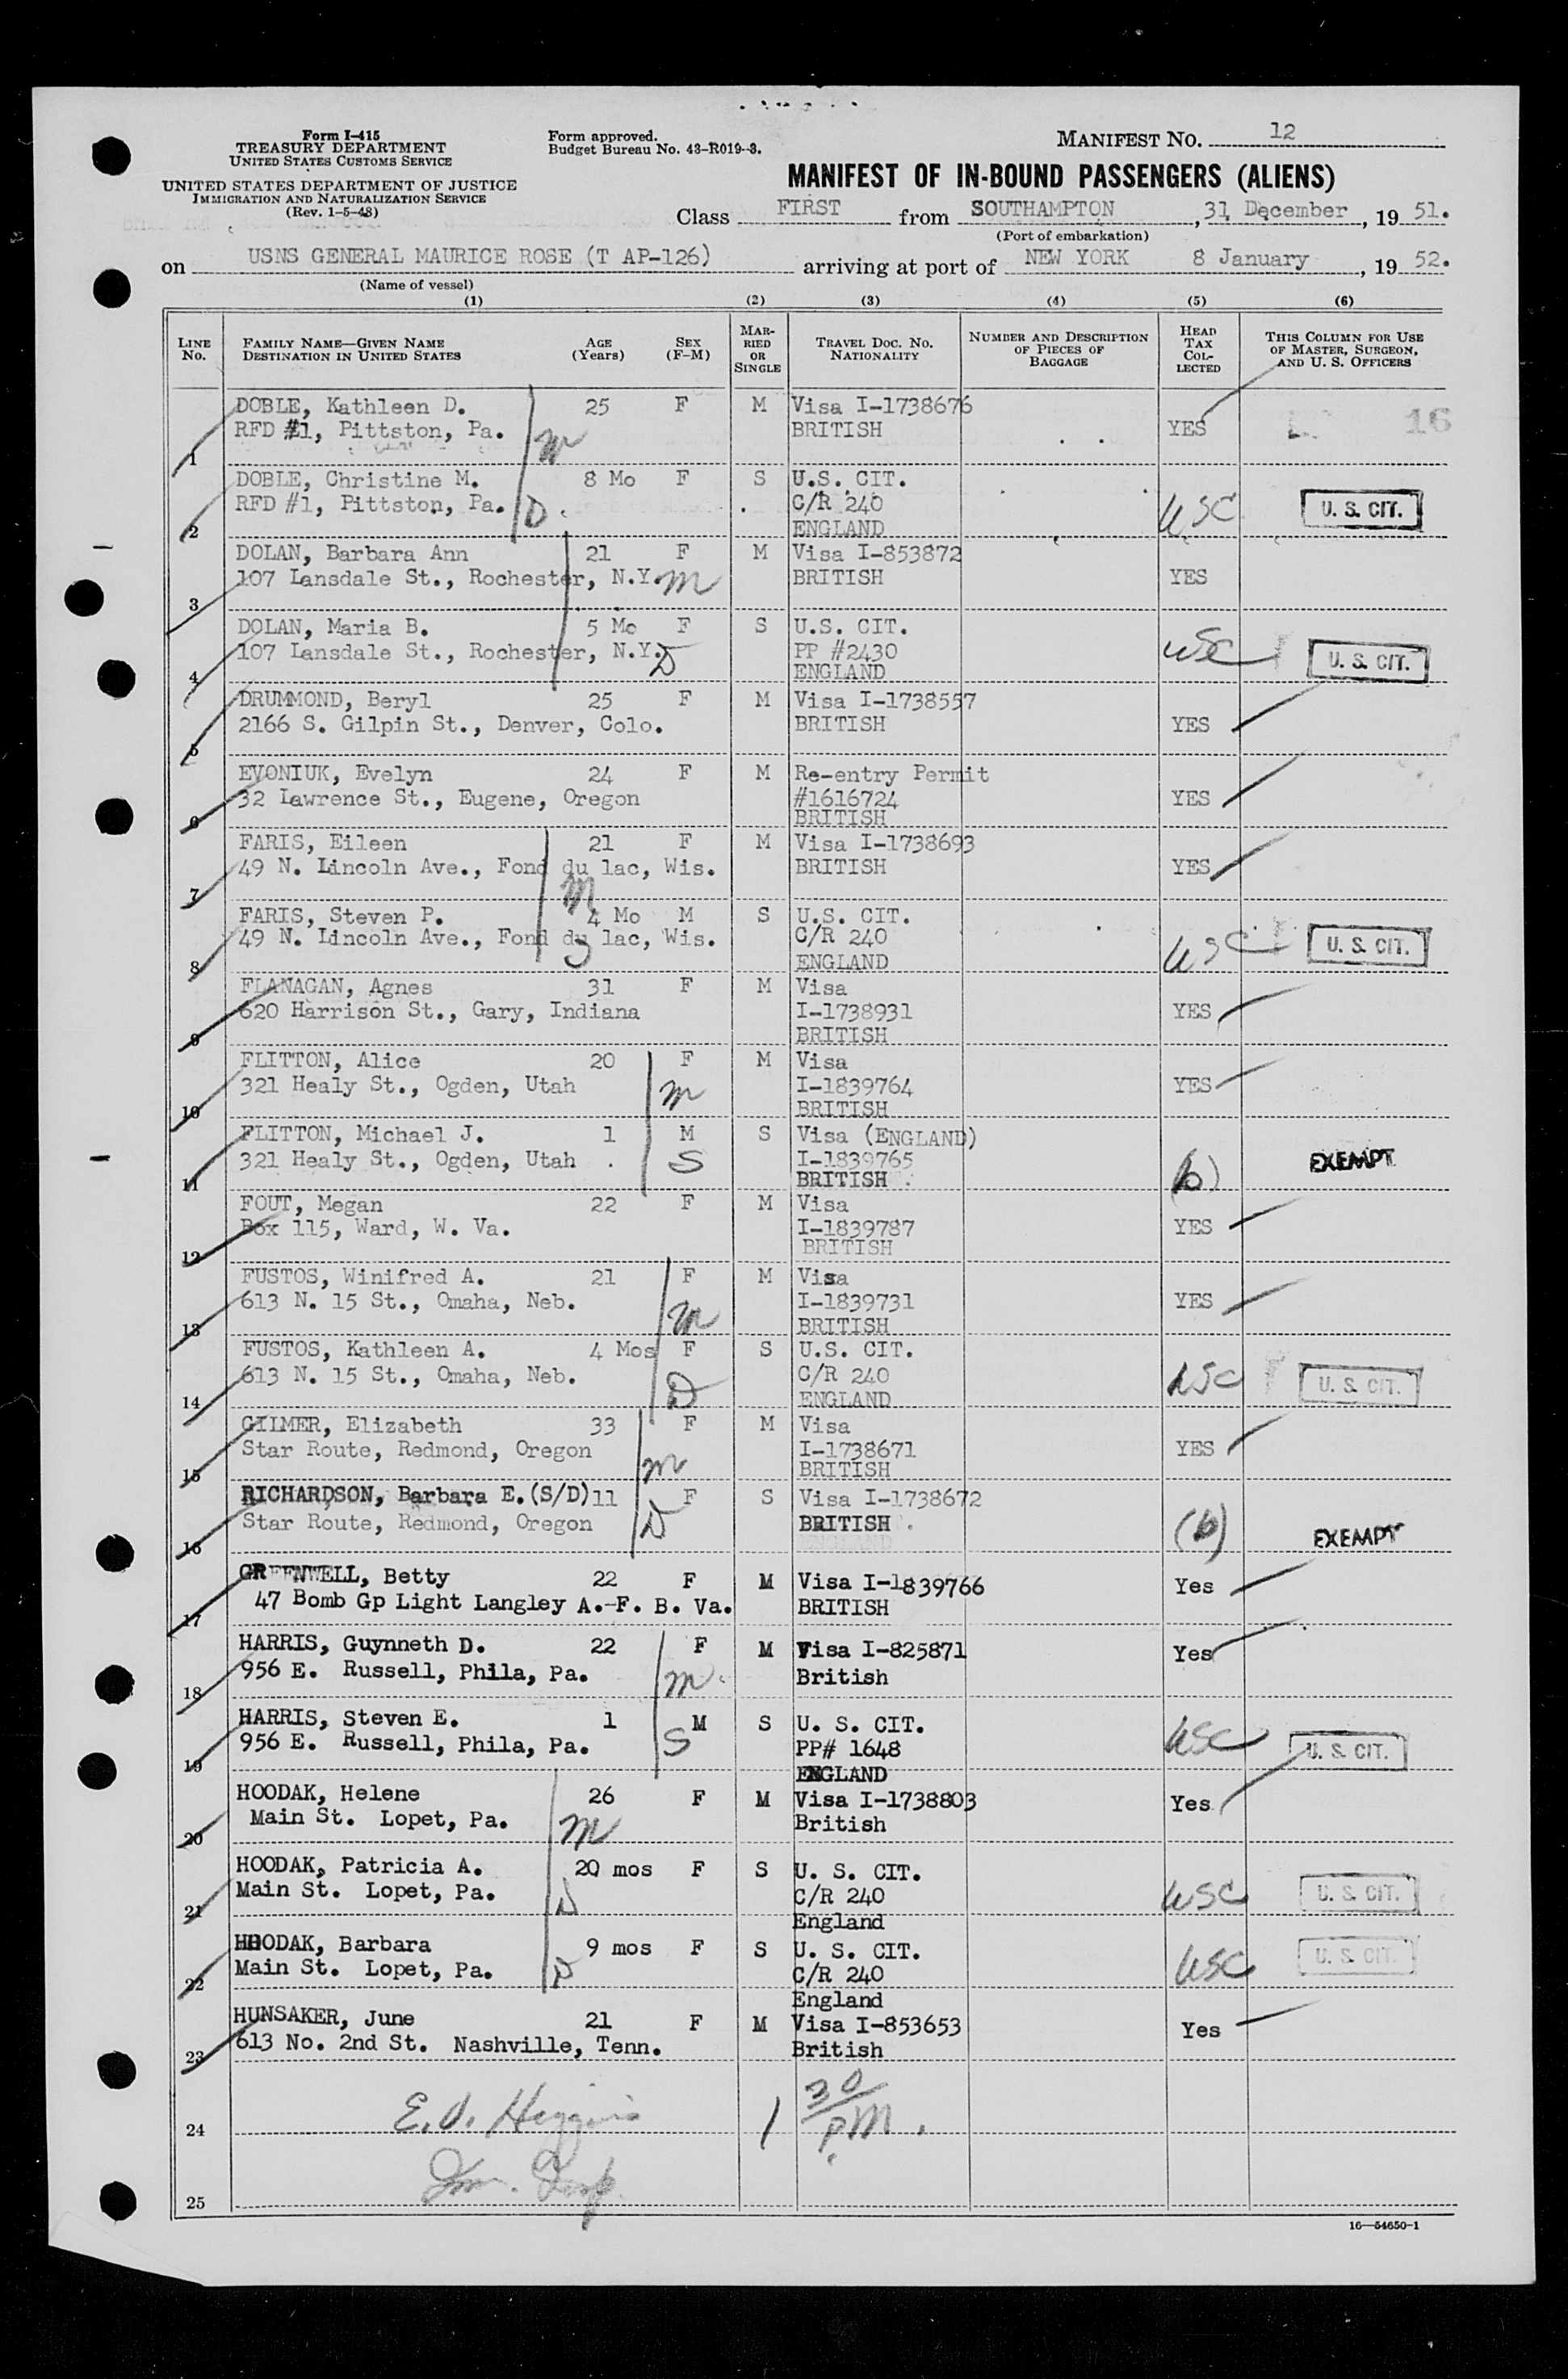 Form I-415
TREASURY DEPARTMENT
UNITED STATES CUSTOMS SERVICE
UNITED STATES DEPARTMENT OF JUSTICE
IMMIGRATION AND NATURALIZATION SERVICE
(Rev. 1-5-48)
Form approved.
Budget Bureau No. 43-R019-3.
MANIFEST NO. 12
MANIFEST OF IN-BOUND PASSENGERS (ALIENS)
Class FIRST from SOUTHAMPTON, 31 December, 19 51.
(Port of embarkation)
on USNS GENERAL MAURICE ROSE (T AP-126) arriving at port of NEW YORK 8 January, 19 52.
(Name of vessel)
(1) (2) (3) (4) (5) (6)
LINE No. FAMILY NAME—GIVEN NAME DESTINATION IN UNITED STATES AGE (Years) SEX (F-M) MARRIED OR SINGLE TRAVEL DOC. NO. NATIONALITY NUMBER AND DESCRIPTION OF PIECES OF BAGGAGE HEAD TAX COLLECTED THIS COLUMN FOR USE OF MASTER, SURGEON, AND U. S. OFFICERS
DOBLE, Kathleen D. 25 F M Visa I-1738676
1 RFD #1, Pittston, Pa. m BRITISH YES 16
DOBLE, Christine M. 8 Mo F S U.S. CIT.
2 RFD #1, Pittston, Pa. D C/R 240 USC U. S. CIT.
ENGLAND
DOLAN, Barbara Ann 21 F M Visa I-853872
3 107 Lansdale St., Rochester, N.Y. m BRITISH YES
DOLAN, Maria B. 5 Mo F S U.S. CIT.
4 107 Lansdale St., Rochester, N.Y. D PP #2430 USC U. S. CIT.
ENGLAND
DRUMMOND, Beryl 25 F M Visa I-1738557
5 2166 S. Gilpin St., Denver, Colo. BRITISH YES
EVONIUK, Evelyn 24 F M Re-entry Permit
6 32 Lawrence St., Eugene, Oregon #1616724 YES
BRITISH
FARIS, Eileen 21 F M Visa I-1738693
7 49 N. Lincoln Ave., Fond du lac, Wis. m BRITISH YES
FARIS, Steven P. 4 Mo M S U.S. CIT.
8 49 N. Lincoln Ave., Fond du lac, Wis. S C/R 240 USC U. S. CIT.
ENGLAND
FLANAGAN, Agnes 31 F M Visa
9 620 Harrison St., Gary, Indiana I-1738931 YES
BRITISH
FLITTON, Alice 20 F M Visa
10 321 Healy St., Ogden, Utah m I-1839764 YES
BRITISH
FLITTON, Michael J. 1 M S Visa (ENGLAND)
11 321 Healy St., Ogden, Utah S I-1839765 (b) EXEMPT
BRITISH
FOUT, Megan 22 F M Visa
12 Box 115, Ward, W. Va. I-1839787 YES
BRITISH
FUSTOS, Winifred A. 21 F M Visa
13 613 N. 15 St., Omaha, Neb. m I-1839731 YES
BRITISH
FUSTOS, Kathleen A. 4 Mos F S U.S. CIT.
14 613 N. 15 St., Omaha, Neb. D C/R 240 USC U. S. CIT.
ENGLAND
GILMER, Elizabeth 33 F M Visa
15 Star Route, Redmond, Oregon m I-1738671 YES
BRITISH
RICHARDSON, Barbara E.(S/D) 11 F S Visa I-1738672
16 Star Route, Redmond, Oregon D BRITISH (b) EXEMPT
GREENWELL, Betty 22 F M Visa I-1839766 Yes
17 47 Bomb Gp Light Langley A.-F. B. Va. BRITISH
HARRIS, Guynneth D. 22 F M Visa I-825871 Yes
18 956 E. Russell, Phila, Pa. m British
HARRIS, Steven E. 1 M S U. S. CIT.
19 956 E. Russell, Phila, Pa. S PP# 1648 USC U. S. CIT.
ENGLAND
HOODAK, Helene 26 F M Visa I-1738803 Yes
20 Main St. Lopet, Pa. m British
HOODAK, Patricia A. 20 mos F S U. S. CIT.
21 Main St. Lopet, Pa. D C/R 240 USC U. S. CIT.
England
HOODAK, Barbara 9 mos F S U. S. CIT.
22 Main St. Lopet, Pa. D C/R 240 USC U. S. CIT.
England
HUNSAKER, June 21 F M Visa I-853653 Yes
23 613 No. 2nd St. Nashville, Tenn. British
24 E.J. Higgins 1 30/PM.
25 Im. Insp.
16—54650-1